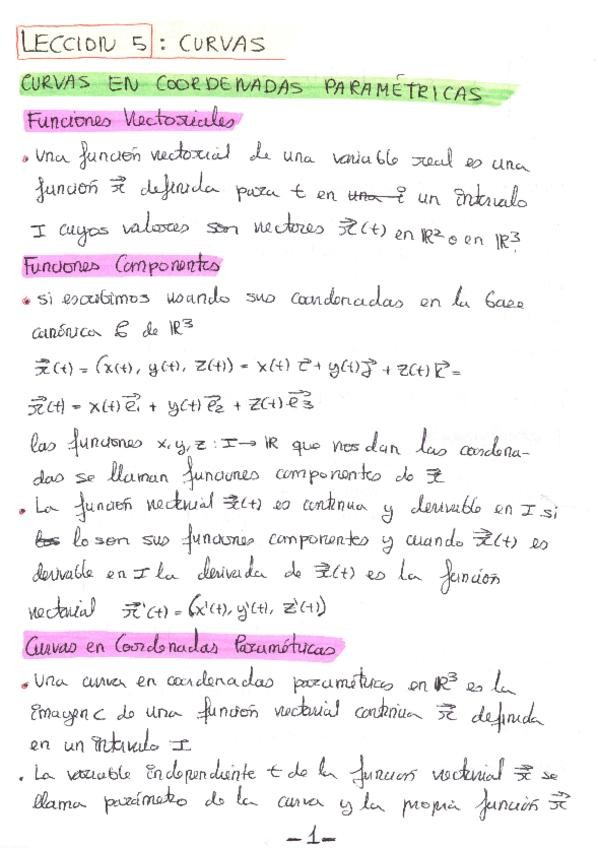 LECCION 5 : CURVAS
CURVAS EN COORDENADAS PARAMÉTRICAS
Funciones Vectoriales
• Una función vectorial de una variable real es una
función r⃗ definida para t en ~~una i~~ un intervalo
I cuyos valores son vectores r⃗(t) en R² o en R³.
Funciones Componentes
• si escribimos usando sus coordenadas en la base
canónica C de R³
r⃗(t) = (x(t), y(t), z(t)) = x(t) i⃗ + y(t) j⃗ + z(t) k⃗ =
r⃗(t) = x(t) e⃗₁ + y(t) e⃗₂ + z(t) e⃗₃
las funciones x, y, z : I → R que nos dan las coordena-
das se llaman funciones componentes de r⃗
• La función vectorial r⃗(t) es continua y derivable en I si
~~los~~ lo son sus funciones componentes y cuando r⃗(t) es
derivable en I la derivada de r⃗(t) es la función
vectorial r⃗'(t) = (x'(t), y'(t), z'(t))
Curvas en Coordenadas Paramétricas
• Una curva en coordenadas paramétricas en R³ es la
imagen C de una función vectorial continua r⃗ definida
en un intervalo I
• La variable independiente t de la función vectorial r⃗ se
llama parámetro de la curva y la propia función r⃗
-1-